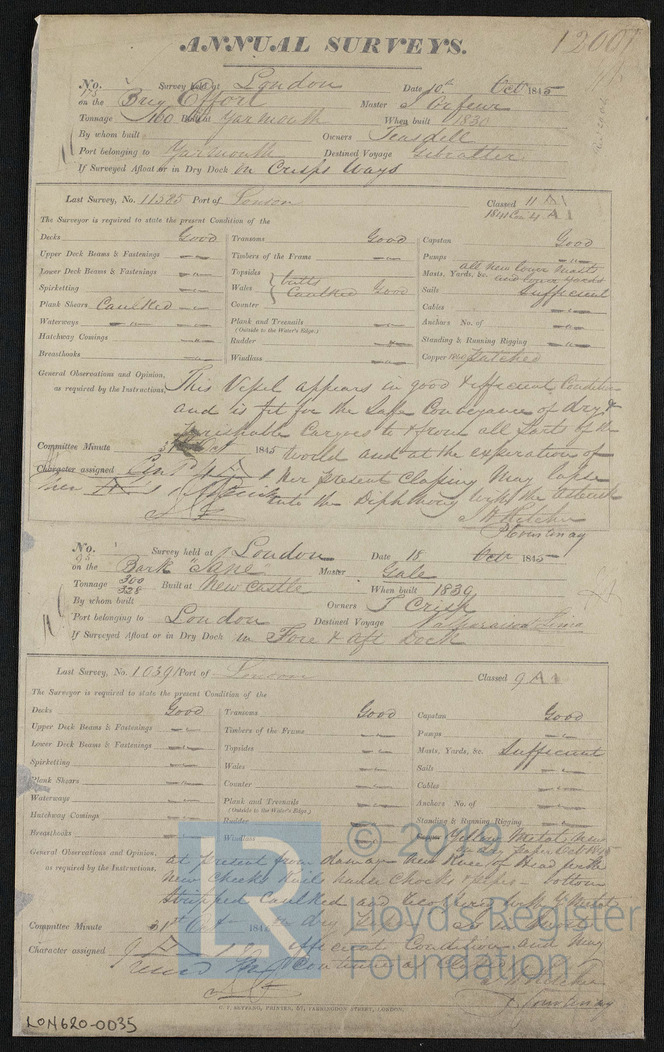 ANNUAL SURVEYS.
12007
No. 175 Survey held at London Date 10th Octr 1845
on the Brig Effort Master
Tonnage 160 Built at Yarmouth When built 1830
By whom built Owners Teasdell
Port belonging to Yarmouth Destined Voyage Gibraltar
If Surveyed Afloat or in Dry Dock in Crisps Ways
Last Survey, No. 11285 Port of London Classed 11 A1
The Surveyor is required to state the present Condition of the
Decks Good
Upper Deck Beams & Fastenings
Lower Deck Beams & Fastenings
Spirketting
Plank Shears Caulked
Waterways
Hatchway Comings
Breasthooks
Transoms Good
Timbers of the Frame
Topsides butts
Wales Caulked Good
Counter
Plank and Treenails
(Outside to the Water's Edge.)
Rudder
Windlass
Capstan Good
Pumps
all new lower Masts
Masts, Yards, &c. and lower yards
Sails Sufficient
Cables
Anchors No. of
Standing & Running Rigging
Copper Patched
General Observations and Opinion,
as required by the Instructions,
This Vessel appears in good & efficient Condition
and is fit for the Safe Conveyance of dry &
perishable Cargoes to & from all Parts of the
World and at the expiration of
her present Classing May lapse
into the Diphthong with the asterisk
Committee Minute 31st Oct 1845
Character assigned
Courtenay
No. 95 Survey held at London Date 18 Octr 1845
on the Bark "Jane" Master Gale
Tonnage 300 328 Built at New Castle When built 1839
By whom built Owners T Crisp
Port belonging to London Destined Voyage Valparaiso & Lima
If Surveyed Afloat or in Dry Dock in Fore & Aft Dock
Last Survey, No. 10391 Port of London Classed 9 A1
The Surveyor is required to state the present Condition of the
Decks Good
Upper Deck Beams & Fastenings
Lower Deck Beams & Fastenings
Spirketting
Plank Shears
Waterways
Hatchway Comings
Breasthooks
Transoms Good
Timbers of the Frame
Topsides
Wales
Counter
Plank and Treenails
(Outside to the Water's Edge.)
Rudder
Windlass
Capstan Good
Pumps
Masts, Yards, &c. Sufficient
Sails
Cables
Anchors No. of
Standing & Running Rigging
Copper Yellow Metal New
General Observations and Opinion,
as required by the Instructions,
at present from damage New Knee of Head with
New Cheeks Rails
Stripped Caulked and
efficient Condition and May
Continue
Committee Minute 31st Oct 184
Character assigned
Courtenay
© 2019
LR
Lloyd's Register
Foundation
C. F. SEYFANG, PRINTER, 57, FARRINGDON STREET, LONDON.
LON620-0035